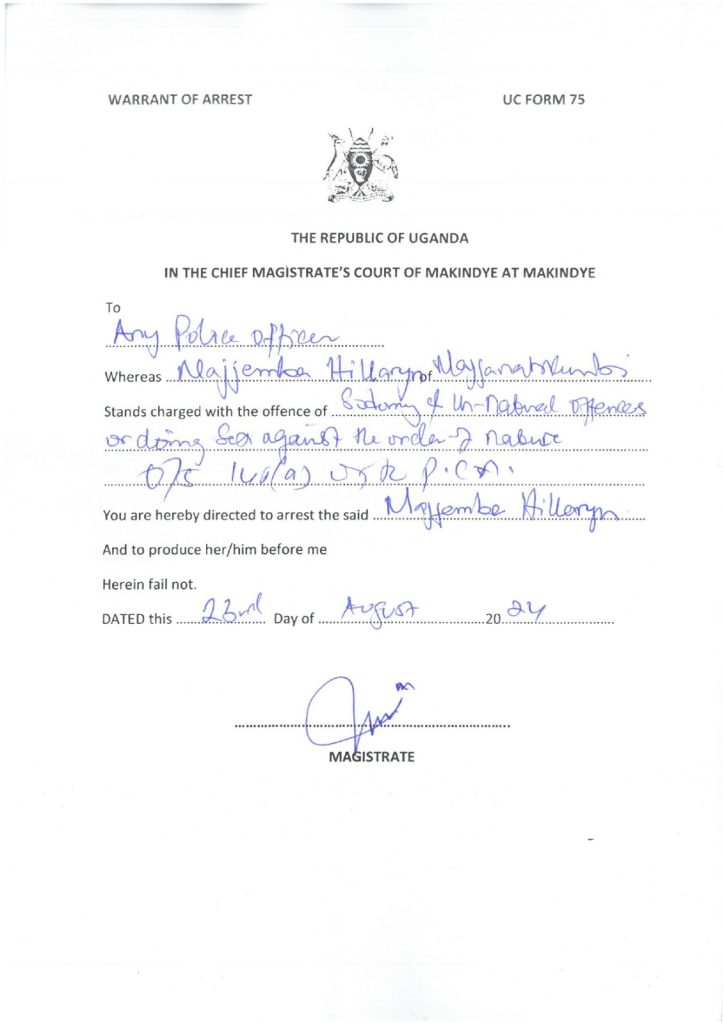 WARRANT OF ARREST UC FORM 75
THE REPUBLIC OF UGANDA
IN THE CHIEF MAGISTRATE'S COURT OF MAKINDYE AT MAKINDYE
To
Any Police Officer
Whereas Majjemba Hillaryn of
Stands charged with the offence of Sodomy & Un-Natural Offences
or doing Sex against the order of Nature
P.C.A.
You are hereby directed to arrest the said Majjemba Hillaryn
And to produce her/him before me
Herein fail not.
DATED this 23rd Day of August 2024
MAGISTRATE